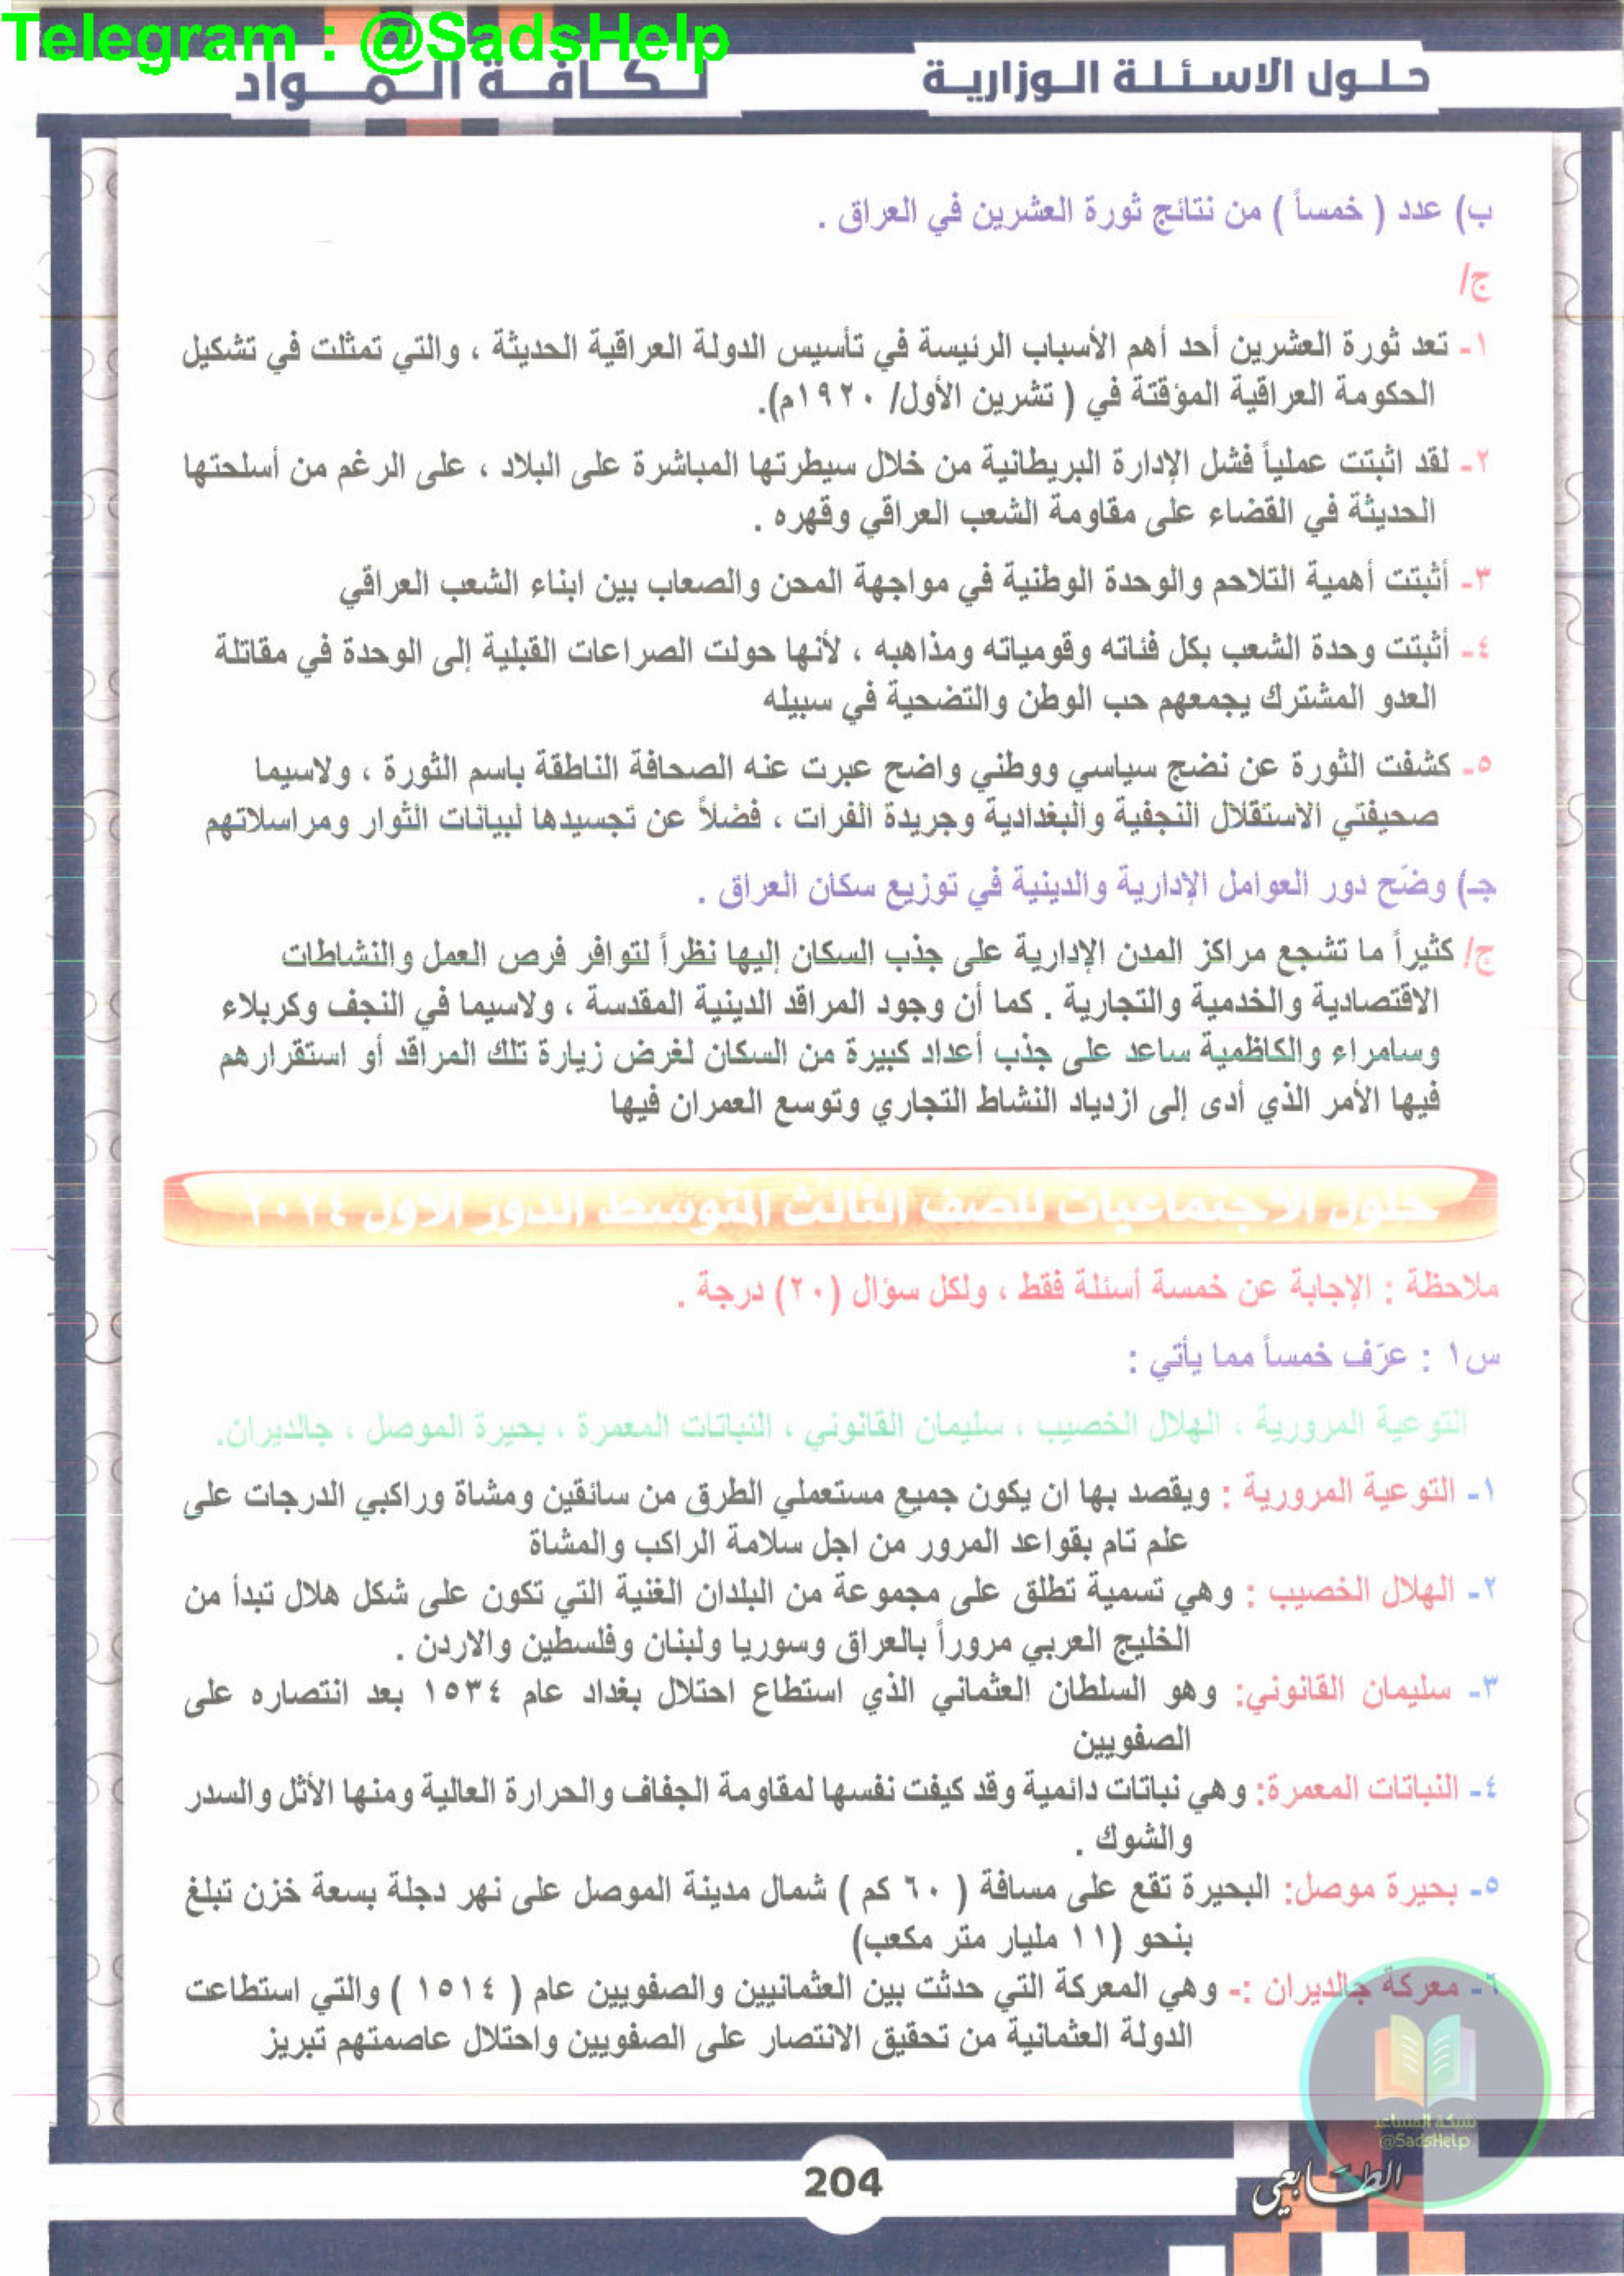 Telegram : @SadsHelp
حلول الاسئلة الوزارية
لكافة المواد
ب) عدد ( خمساً ) من نتائج ثورة العشرين في العراق .
ج/
١- تعد ثورة العشرين أحد أهم الأسباب الرئيسة في تأسيس الدولة العراقية الحديثة ، والتي تمثلت في تشكيل
الحكومة العراقية المؤقتة في ( تشرين الأول/ ١٩٢٠م).
٢- لقد اثبتت عملياً فشل الإدارة البريطانية من خلال سيطرتها المباشرة على البلاد ، على الرغم من أسلحتها
الحديثة في القضاء على مقاومة الشعب العراقي وقهره .
٣- أثبتت أهمية التلاحم والوحدة الوطنية في مواجهة المحن والصعاب بين ابناء الشعب العراقي
٤- أثبتت وحدة الشعب بكل فئاته وقومياته ومذاهبه ، لأنها حولت الصراعات القبلية إلى الوحدة في مقاتلة
العدو المشترك يجمعهم حب الوطن والتضحية في سبيله
٥- كشفت الثورة عن نضج سياسي ووطني واضح عبرت عنه الصحافة الناطقة باسم الثورة ، ولاسيما
صحيفتي الاستقلال النجفية والبغدادية وجريدة الفرات ، فضلاً عن تجسيدها لبيانات الثوار ومراسلاتهم
جـ) وضّح دور العوامل الإدارية والدينية في توزيع سكان العراق .
ج/ كثيراً ما تشجع مراكز المدن الإدارية على جذب السكان إليها نظراً لتوافر فرص العمل والنشاطات
الاقتصادية والخدمية والتجارية . كما أن وجود المراقد الدينية المقدسة ، ولاسيما في النجف وكربلاء
وسامراء والكاظمية ساعد على جذب أعداد كبيرة من السكان لغرض زيارة تلك المراقد أو استقرارهم
فيها الأمر الذي أدى إلى ازدياد النشاط التجاري وتوسع العمران فيها
حلول الاجتماعيات للصف الثالث المتوسط الدور الاول ٢٠٢٤
ملاحظة : الإجابة عن خمسة أسئلة فقط ، ولكل سؤال (٢٠) درجة .
س١ : عرّف خمساً مما يأتي :
التوعية المرورية ، الهلال الخصيب ، سليمان القانوني ، النباتات المعمرة ، بحيرة الموصل ، جالديران.
١- التوعية المرورية : ويقصد بها ان يكون جميع مستعملي الطرق من سائقين ومشاة وراكبي الدرجات على
علم تام بقواعد المرور من اجل سلامة الراكب والمشاة
٢- الهلال الخصيب : وهي تسمية تطلق على مجموعة من البلدان الغنية التي تكون على شكل هلال تبدأ من
الخليج العربي مروراً بالعراق وسوريا ولبنان وفلسطين والاردن .
٣- سليمان القانوني: وهو السلطان العثماني الذي استطاع احتلال بغداد عام ١٥٣٤ بعد انتصاره على
الصفويين
٤- النباتات المعمرة: وهي نباتات دائمية وقد كيفت نفسها لمقاومة الجفاف والحرارة العالية ومنها الأثل والسدر
والشوك .
٥- بحيرة موصل: البحيرة تقع على مسافة ( ٦٠ كم ) شمال مدينة الموصل على نهر دجلة بسعة خزن تبلغ
بنحو (١١ مليار متر مكعب)
٦- معركة جالديران :- وهي المعركة التي حدثت بين العثمانيين والصفويين عام ( ١٥١٤ ) والتي استطاعت
الدولة العثمانية من تحقيق الانتصار على الصفويين واحتلال عاصمتهم تبريز
شبكة المساعد
@SadsHelp
الطابعي
204